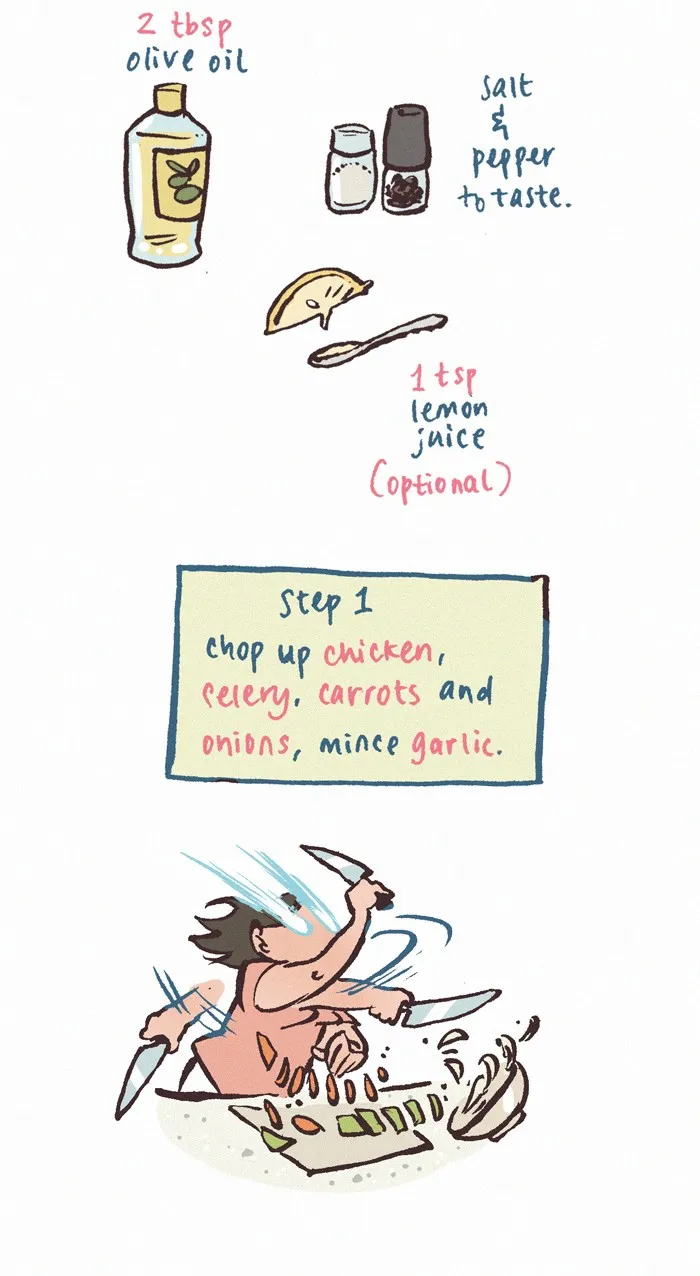 2 tbsp
olive oil
salt
&
pepper
to taste.
1 tsp
lemon
juice
(optional)
Step 1
chop up chicken,
celery, carrots and
onions, mince garlic.